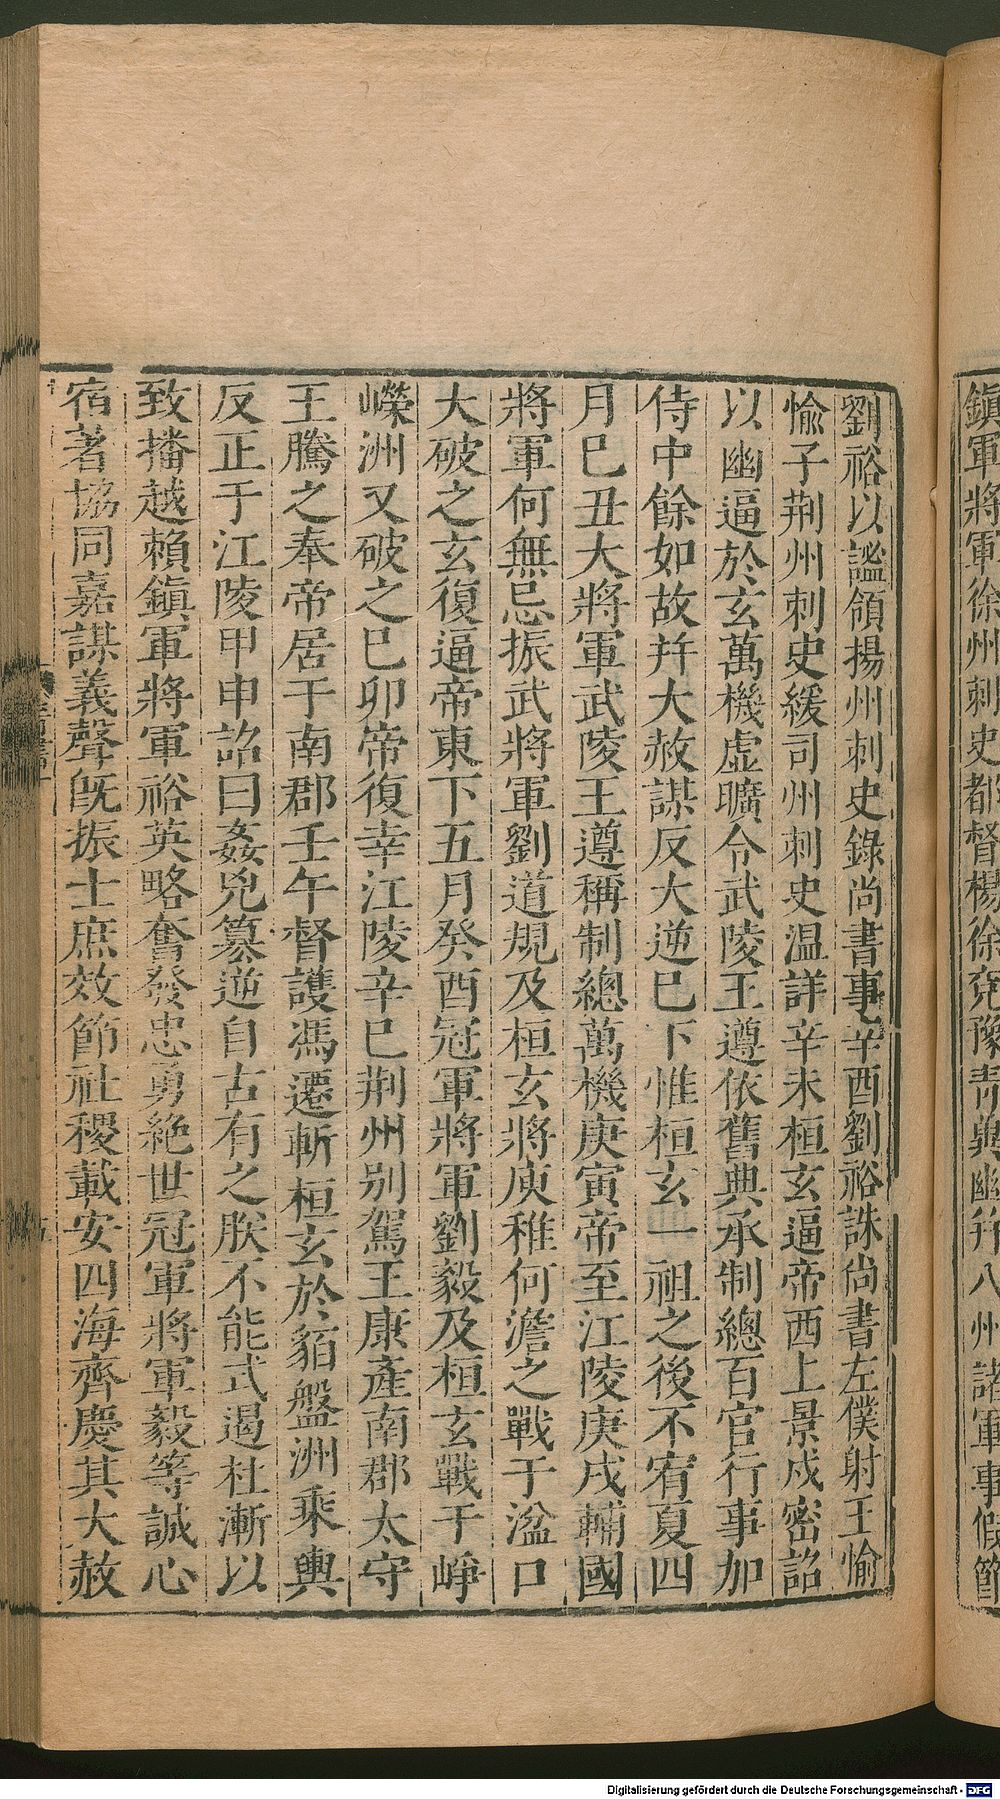 鎮軍將軍徐州刺史都督楊徐兗豫青冀幽并八州諸軍事假節
劉裕以謐領揚州刺史錄尚書事辛酉劉裕誅尚書左僕射王愉
愉子荆州刺史緩司州刺史温詳辛未桓玄逼帝西上景戍密詔
以幽逼於玄萬機虚曠令武陵王遵依舊典承制總百官行事加
侍中餘如故并大赦謀反大逆巳下惟桓玄一祖之後不宥夏四
月巳丑大將軍武陵王遵稱制總萬機庚寅帝至江陵庚戌輔國
將軍何無忌振武將軍劉道規及桓玄將庾稚何澹之戰于湓口
大破之玄復逼帝東下五月癸酉冠軍將軍劉毅及桓玄戰于崢
嶸洲又破之巳卯帝復幸江陵辛巳荆州別駕王康產南郡太守
王騰之奉帝居于南郡壬午督護馮遷斬桓玄於貊盤洲乘輿
反正于江陵甲申詔曰姦兇篡逆自古有之朕不能式遏杜漸以
致播越賴鎮軍將軍裕英略奮發忠勇絶世冠軍將軍毅等誠心
宿著協同嘉謀義聲旣振士庶效節社稷載安四海齊慶其大赦
Digitalisierung gefördert durch die Deutsche Forschungsgemeinschaft - DFG